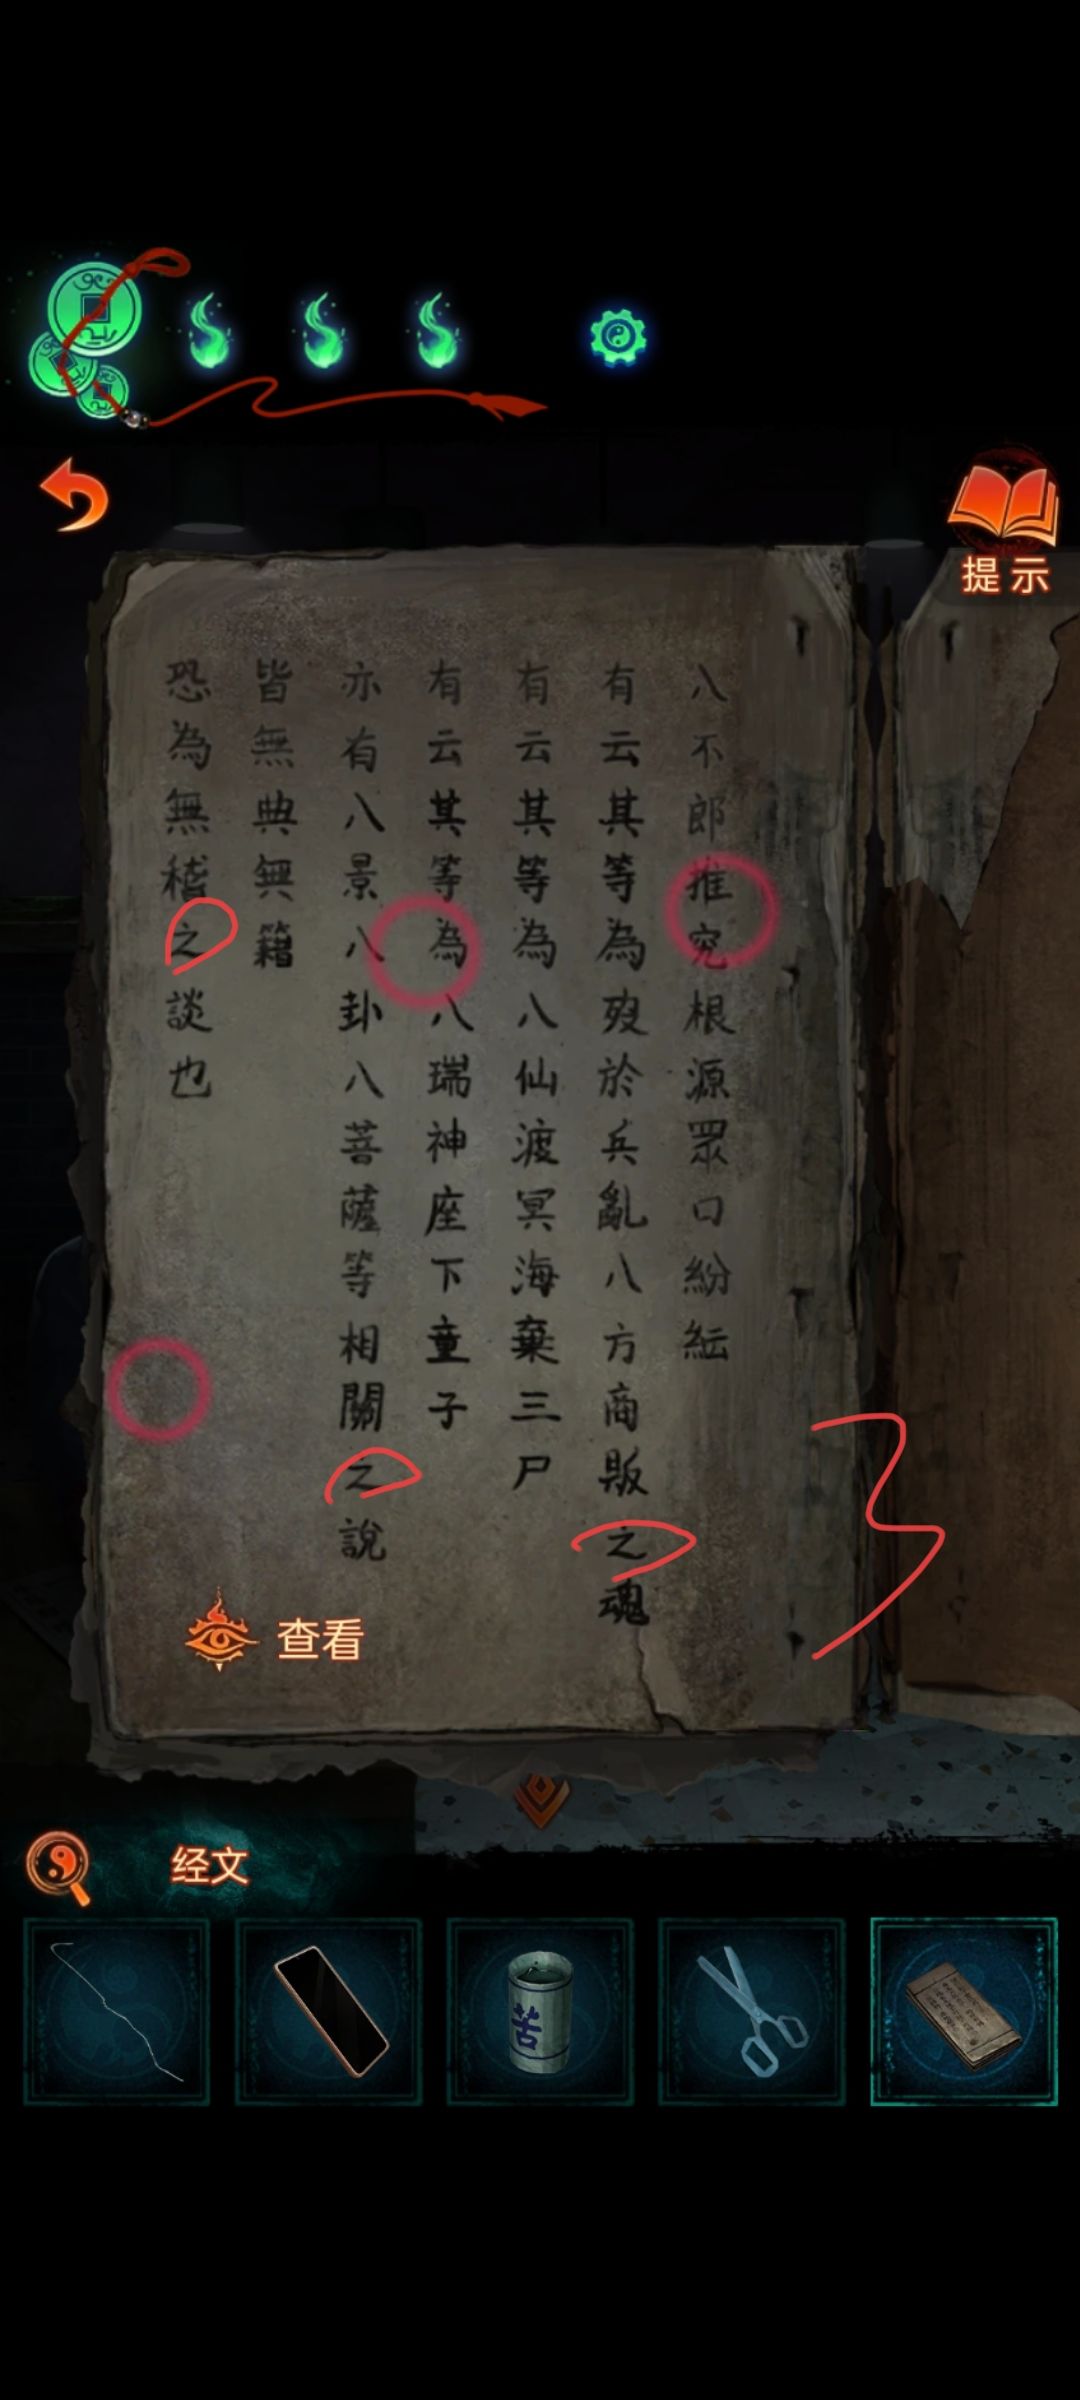 提示
八不郎推究根源眾口紛紜
有云其等為歿於兵亂八方商販之魂
有云其等為八仙渡冥海棄三尸
有云其等為八瑞神座下童子
亦有八景八卦八菩薩等相關之說
皆無典無籍
恐為無稽之談也
3
查看
经文
苦